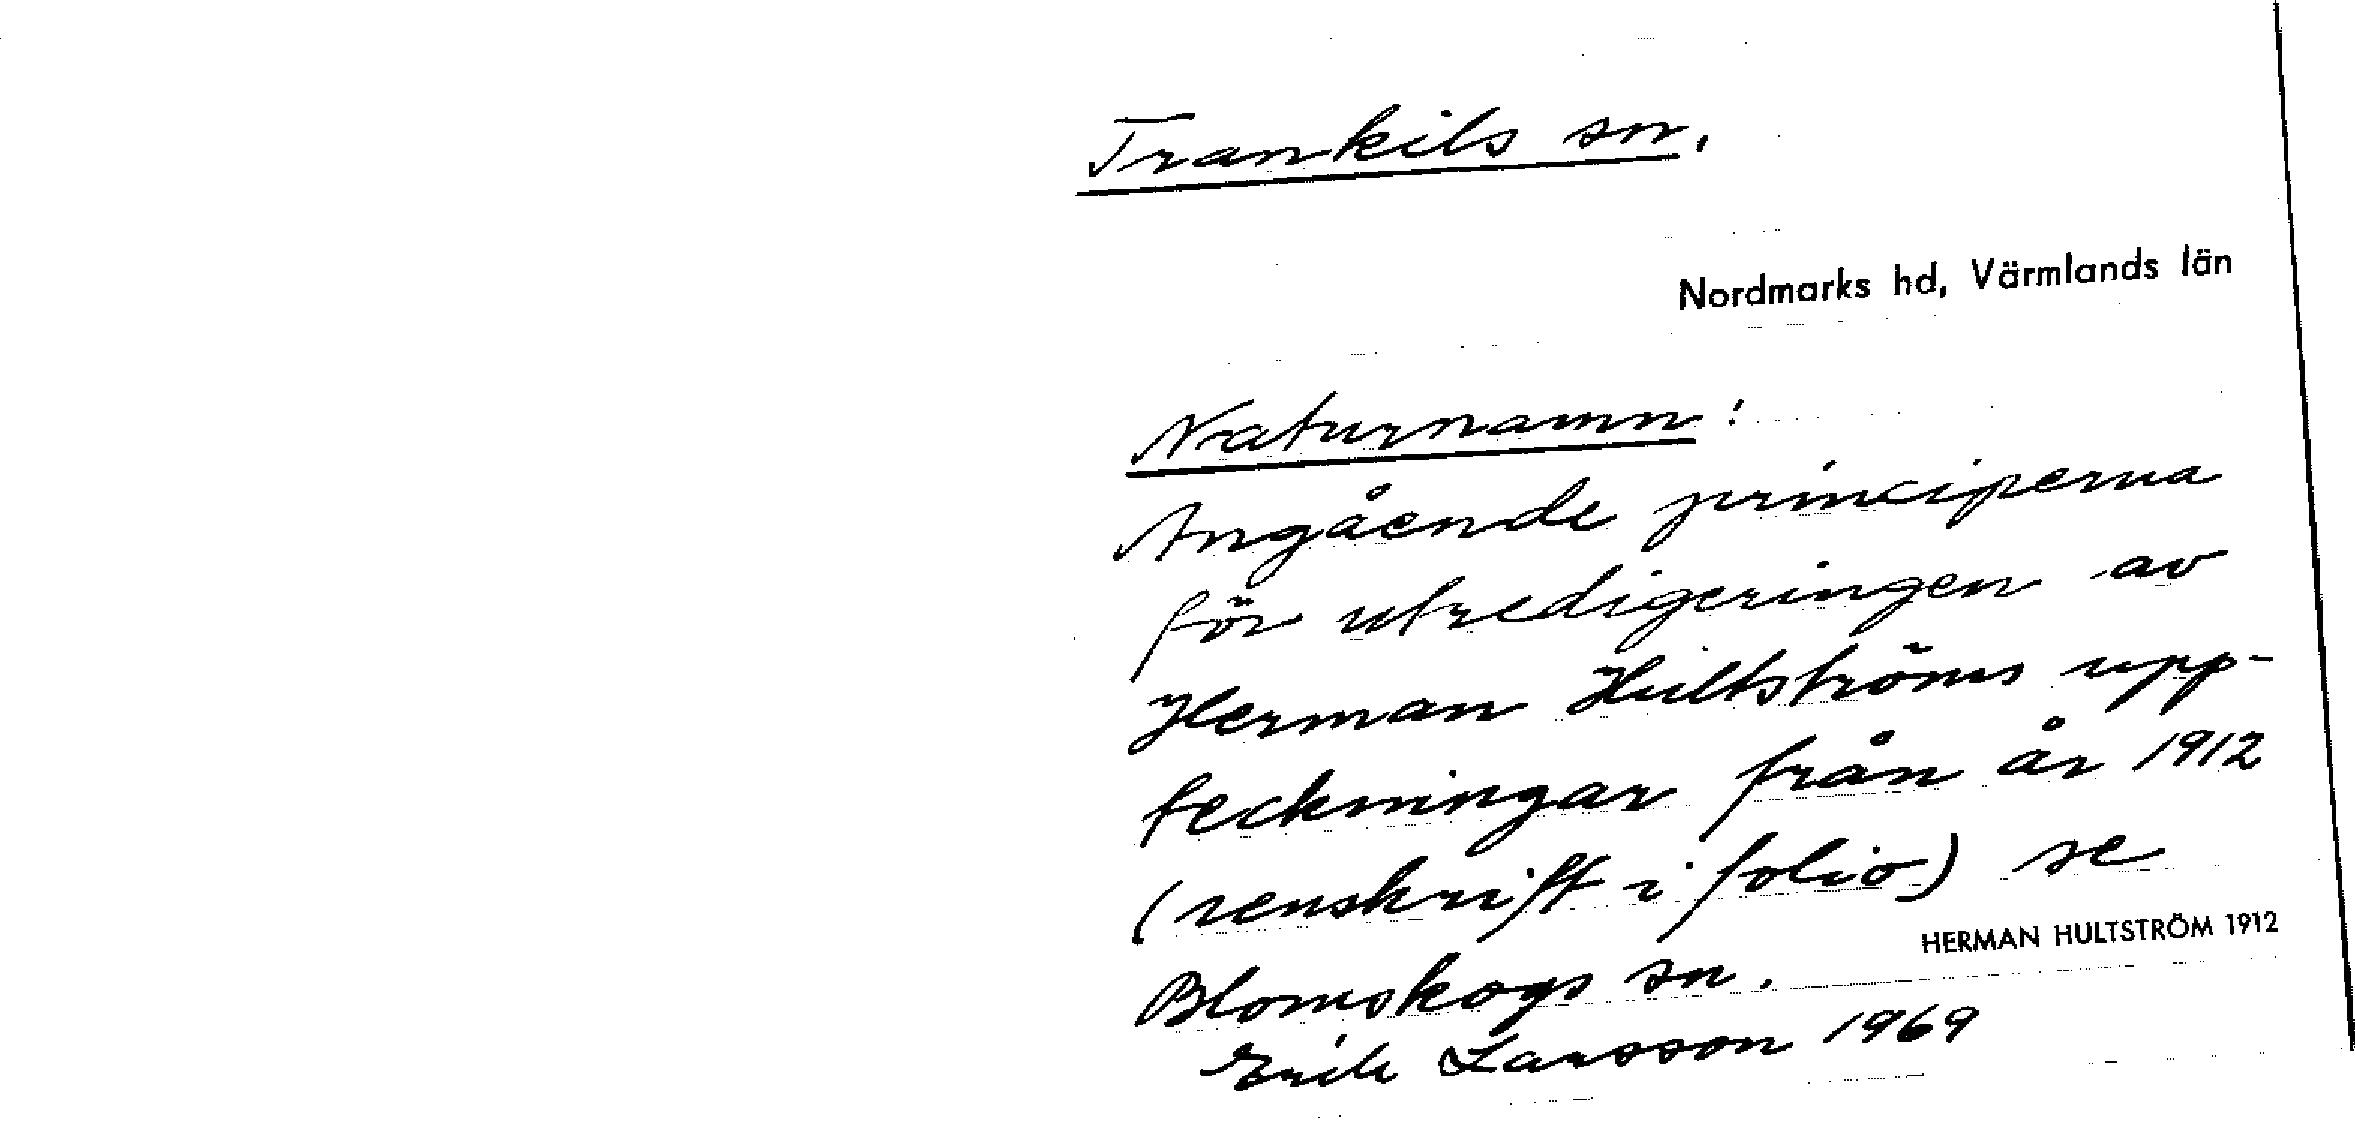 Trankils sn.
Nordmarks hd, Värmlands län
Naturnamn:
Angående principerna
för utredigeringen av
Herman Hultströms upp-
teckningar från år 1912
(renskrift i folio) se
HERMAN HULTSTRÖM 1912
Blomskogs sn.
Erik Larsson 1969